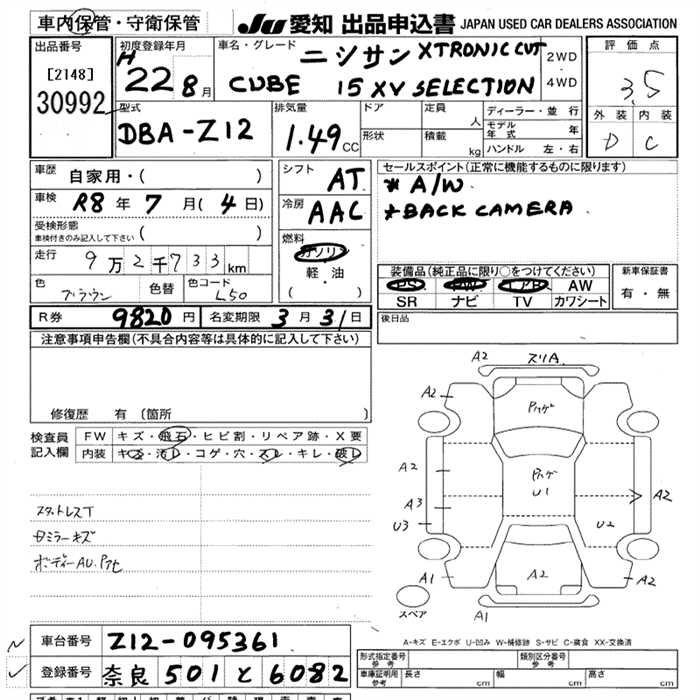 車内保管・守衛保管 JU 愛知 出品申込書 JAPAN USED CAR DEALERS ASSOCIATION
出品番号 [2148] 30992
初度登録年月 H 22 8月
車名・グレード ニシサン XTRONIC CVT
CUBE 15 XV SELECTION
2WD
4WD
評価点 3,5
外装 内装
D C
型式 DBA-Z12
排気量 1.49cc
ドア
形状
定員 人
積載 kg
ディーラー・並行
モデル年式 年
ハンドル 左・右
車歴 自家用・( )
車検 R8年7月(4日)
受検形態
車検付きのみ記入して下さい ( )
走行 9万2千733km
色 ブラウン 色替 色コード L50
シフト AT
冷房 AAC
燃料 ガソリン
軽・油
( ・ )
セールスポイント(正常に機能するものに限ります)
* A/W
* BACK CAMERA
装備品(純正品に限り○をつけてください)
PS PW エアB AW
SR ナビ TV カワシート
新車保証書
有・無
R券 9820円 名変期限 3月31日
後日品
注意事項申告欄(不具合内容等は具体的に記入して下さい)
修復歴 有 (箇所
検査員記入欄
FW キズ・飛石・ヒビ割・リペア跡・X要
内装 キズ・汚レ・コゲ・穴・スレ・キレ・破レ
スタットレスT
日ミラーキズ
ボディーAU.アセ
A2 スリA
A2
A2
A3
U3
A1
A1
A2
U1
U2
A2
A2
A1
スペア
A-キズ E-エクボ U-凹み W-補修跡 S-サビ C-腐食 XX-交換済
車台番号 Z12-095361
登録番号 奈良 501 と 6082
形式指定番号 参考
類別区分番号 参考
車庫証明用 参考 長さ cm 幅 cm 高さ cm